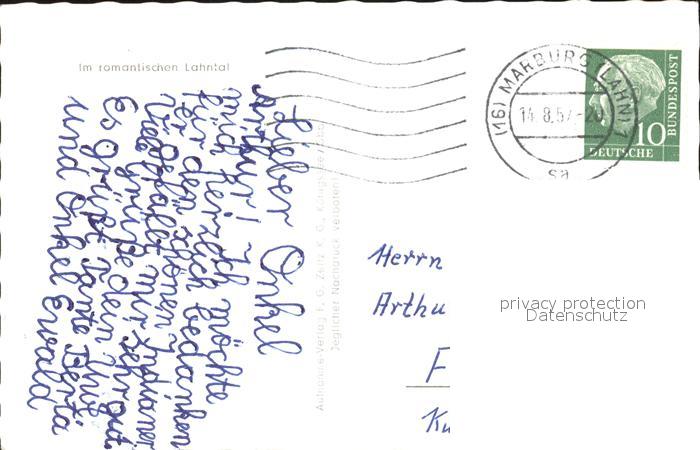 Im romantischen Lahntal
Lieber Onkel
Arthur! Ich möchte
mich herzlich bedanken
für den schönen Indianer
Er gefällt mir sehr gut.
Viele Grüße dein
Es grüßt Tante Berta
und Onkel Ewald
Jeglicher Nachdruck verboten
(16) MARBURG (LAHN) 1
14.8.57.-20
sa
10
DEUTSCHE
BUNDESPOST
Herrn
Arthu
F
Ku
privacy protection
Datenschutz